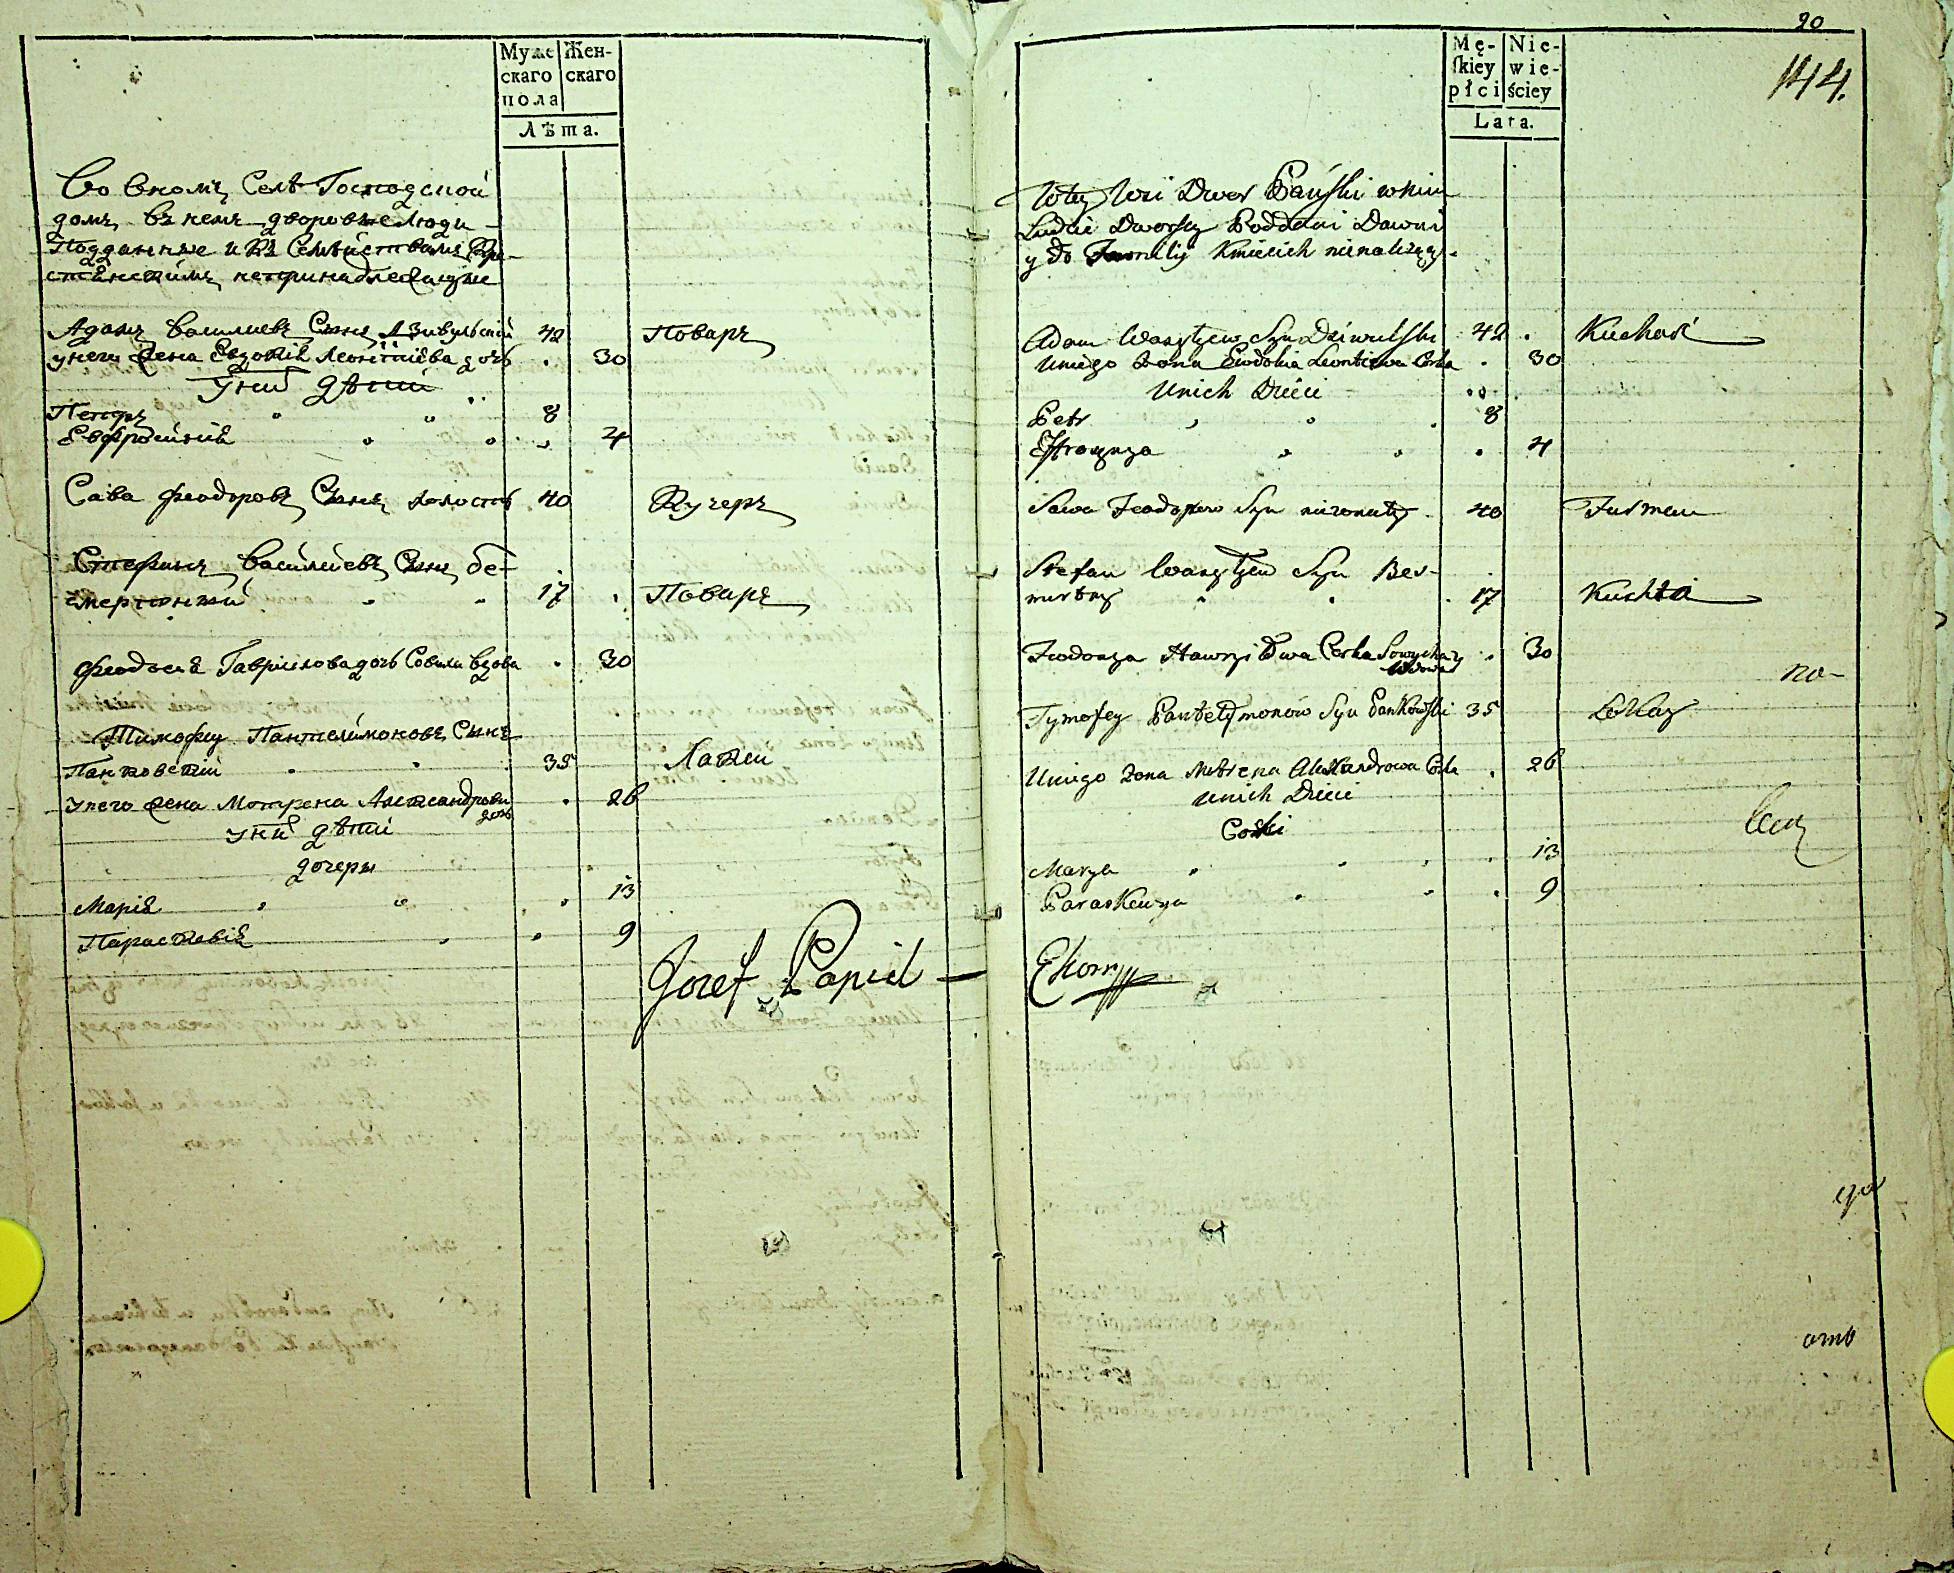 Муже Жен-
скаго скаго
пола
Лѣта.
Во ономъ Селѣ Господской
домъ въ немъ дворовые люди
Подданные и къ Семействамъ Кре-
стянскимъ непринадлежащие
Адамъ Василиевъ Сынъ Дзивульский 42 Поваръ
унего жена Евдокия Леонтиева дочь 30
У них дѣти
Петръ 8
Евфросиния 4
Сава Феодоровъ Сынъ холостъ 40 Кучеръ
Стефанъ Василиевъ Сынъ бе-
смертный 17 Поваръ
Феодосия Гавриилова дочь вдова 30
Тимофей Пантелимоновъ Сынъ
Панковский 35 Лакей
унего жена Мотрена Александрова дочь 26
у них дѣти
дочери
Мария 13
Параскевия 9
Jozef Papiel — Ekonom
20
144.
Mę- Nie-
skiey wie-
płci ściey
Lata.
W tey Wsi Dwor Pański w nim
Ludzie Dworscy Poddani Dawni
y do Familiy Kmiecich nienalezący.
Adam Wasylzew Syn Dziwulski 42 Kucharz
Uniego Zona Ewdokia Leontiewa Corka 30
Unich Dzieci
Petr 8
Effrozyna 4
Sawa Feodorow Syn niezonaty 40 Furman
Stefan Wasylzew Syn Bes-
mertny 17 Kuchta
Feodozya Corka Wdowa 30
no-
Tymofey Pantelymonow Syn Pankowski 35 Lokay
Uniego Zona Motrena Alexandrowa Corka 26
Unich Dzieci
Corki
Marya 13
Paraskewya 9